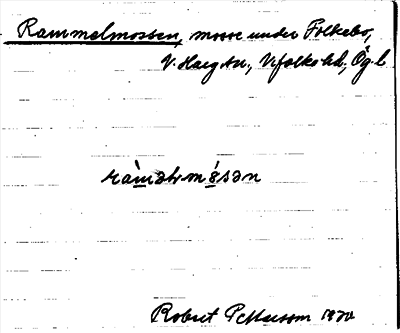 Rammelmossen, mosse under Folkebo,
V. Harg sn., Vifolka hd, Ög. l.
Robert Pettersson 1930